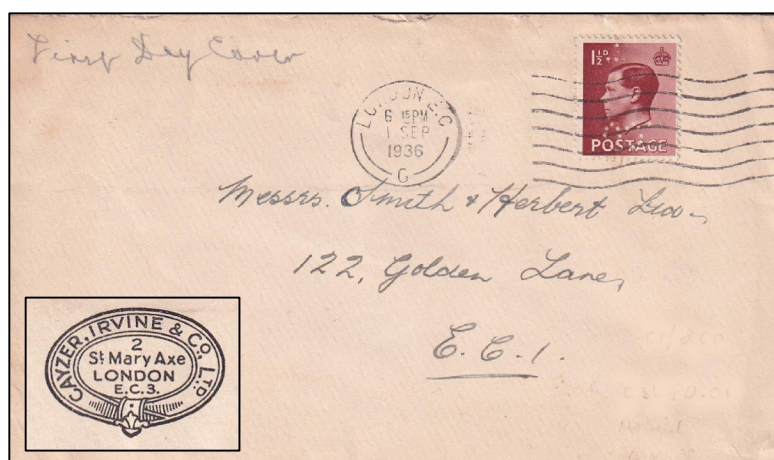 First Day Cover
LONDON E.C
6 15PM
1 SEP
1936
G
1½D
POSTAGE
Messrs. Smith & Herbert Ltd.
122, Golden Lane,
E.C.1.
CAYZER, IRVINE & Co, LTD.
2
St Mary Axe
LONDON
E.C.3.